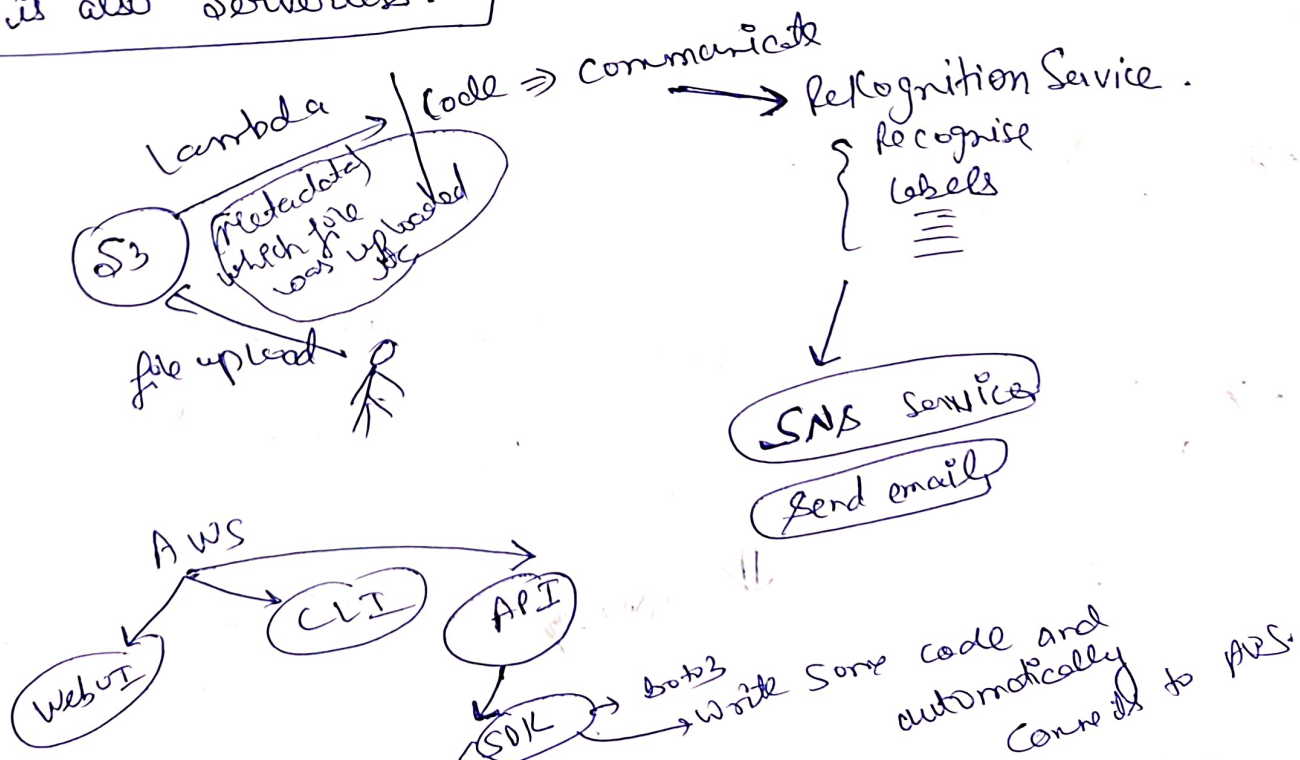 is also serverless.
Lambda
Code ⇒ communicate
Rekognition Service.
Recognise
labels
S3
(metadata)
which file
was uploaded
etc
file upload
SNS Service
Send email
AWS
WebUI
CLI
API
SDK
boto3
write some code and
automatically
connects to AWS.